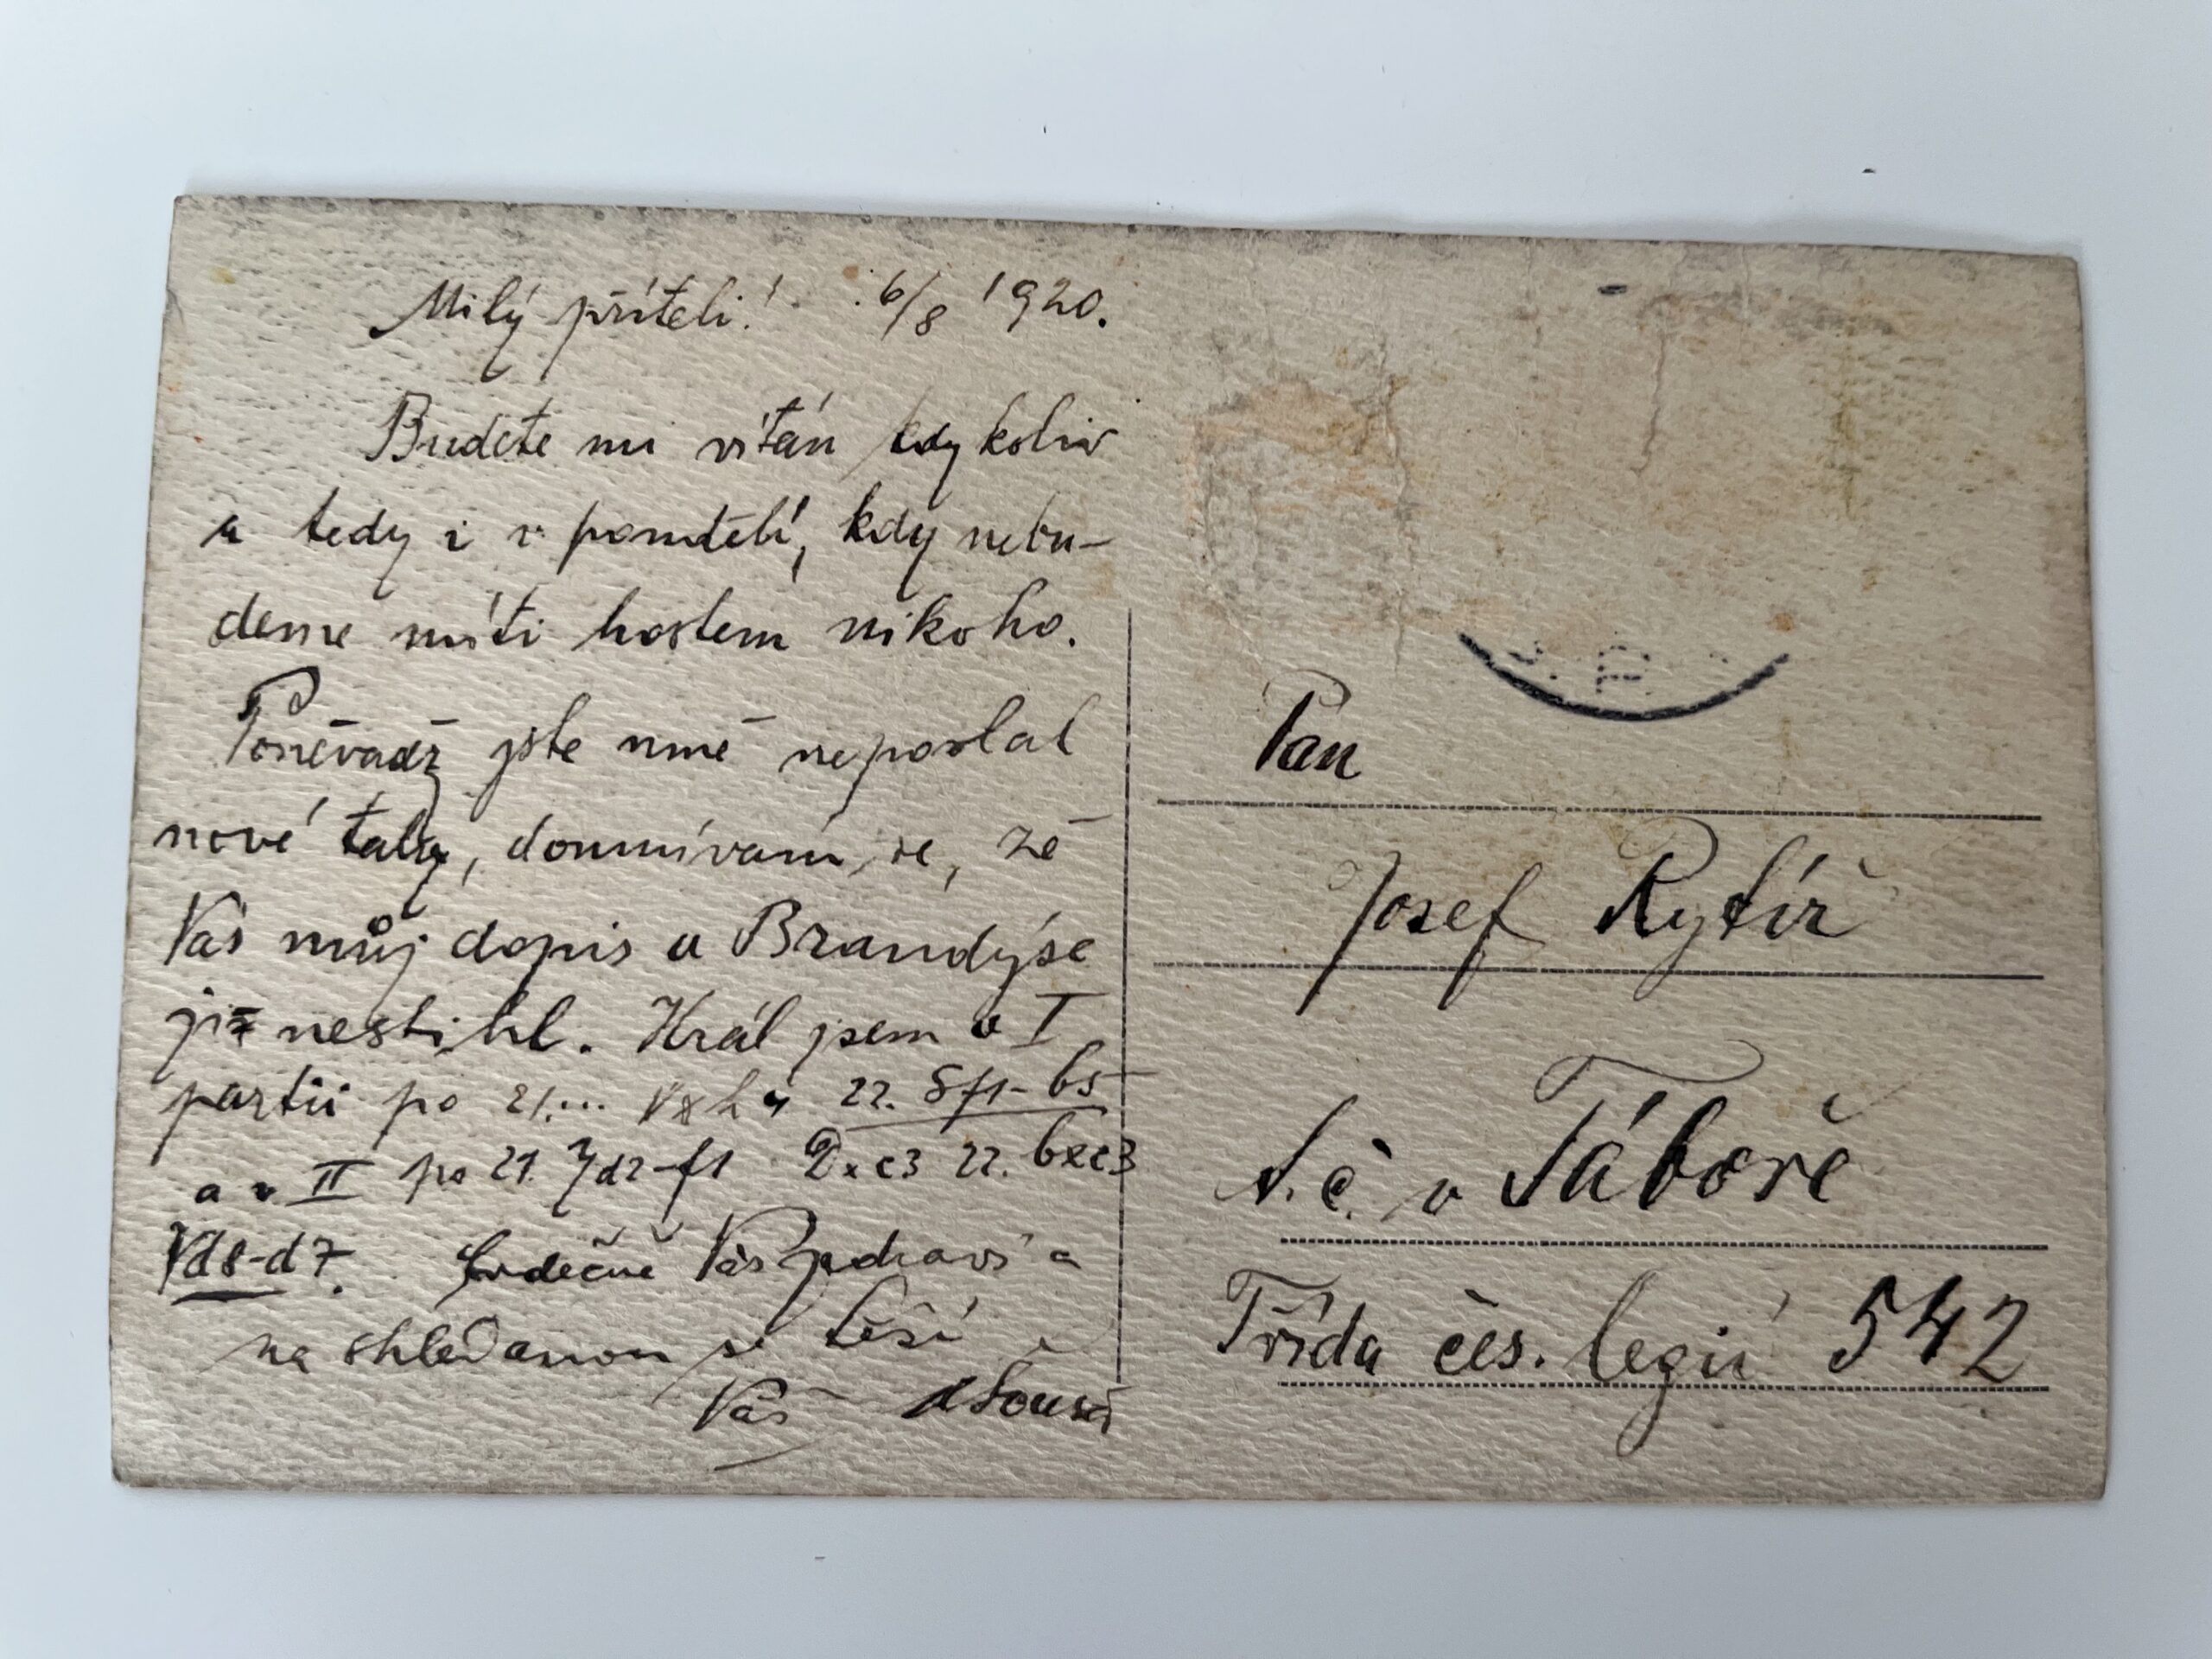 Milý příteli! 6/8 1920.
Budete mi vítán kdykoliv
a tedy i v pondělí, kdy nebu-
deme míti hostem nikoho.
Poněvadž jste mně neposlal
nové tahy, domnívám se, že
Vás můj dopis v Brandýse
již nestihl. Hrál jsem v I
partii po 21.... Vxh4 22. Sf1-b5
a v II po 21. Jd2-f1 Dxc3 22. bxc3
Vd8-d7. Srdečně Vás zdraví a
na shledanou se těší
Váš
Pan
Josef Rytíř
t. č. v Táboře
Třída čes. legií 542